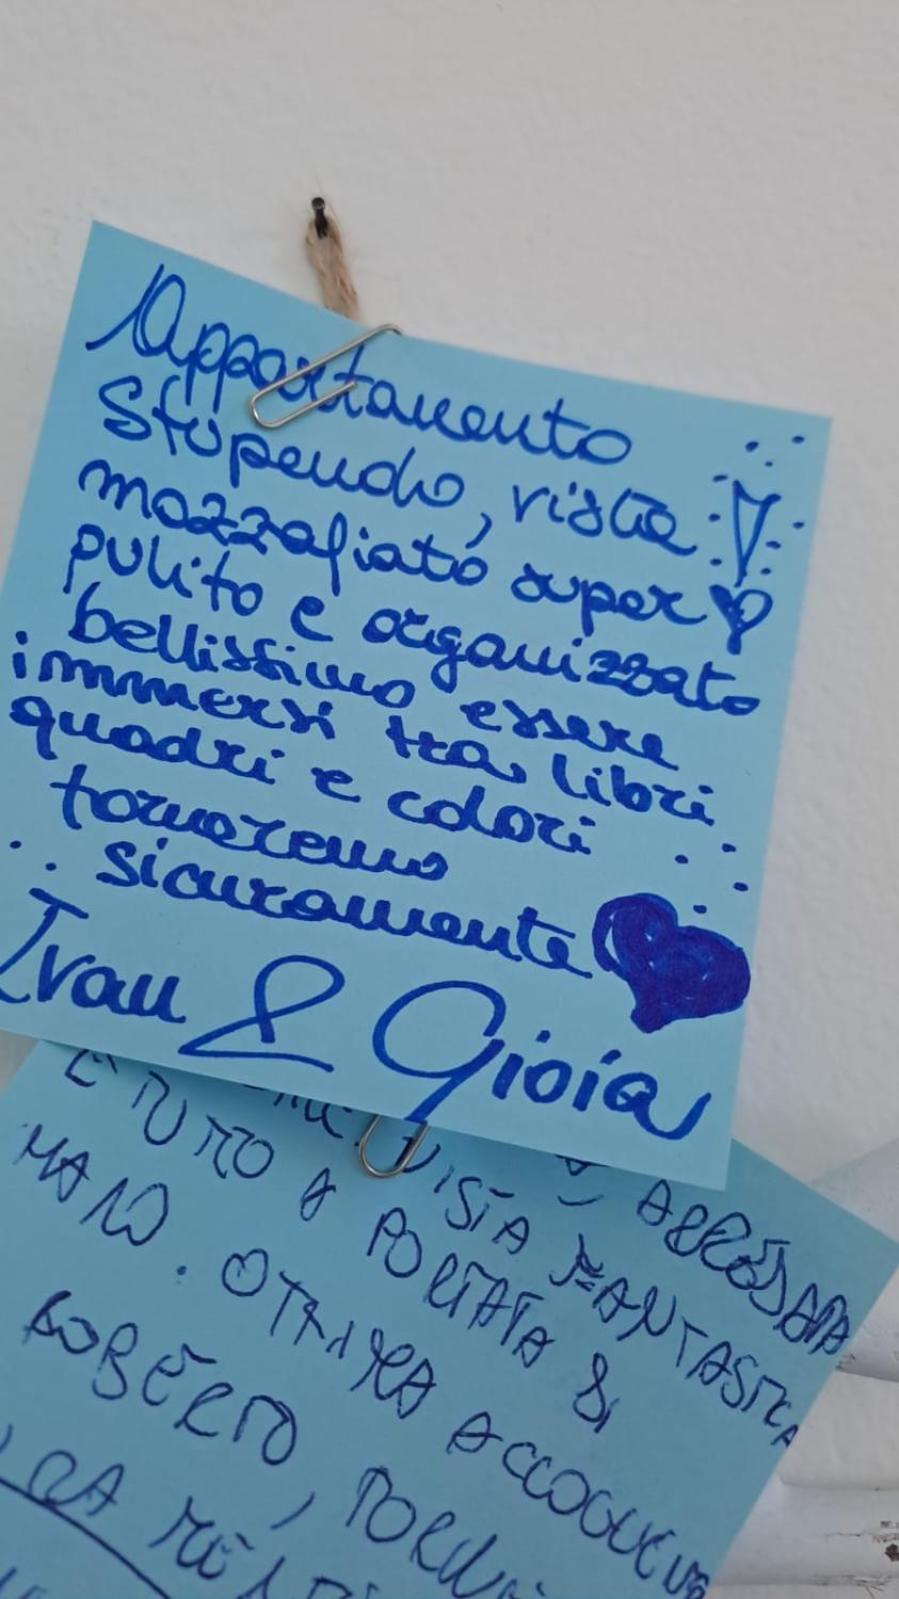 Appartamento
Stupendo, vista
mozzafiato super
pulito e organizzato
bellissimo essere
immersi tra libri
quadri e colori
torneremo
sicuramente
Ivan & Gioia
VISTA FANTASTICA
E TUTTO A PORTATA DI
MANO. OTTIMA
ROBERTO,